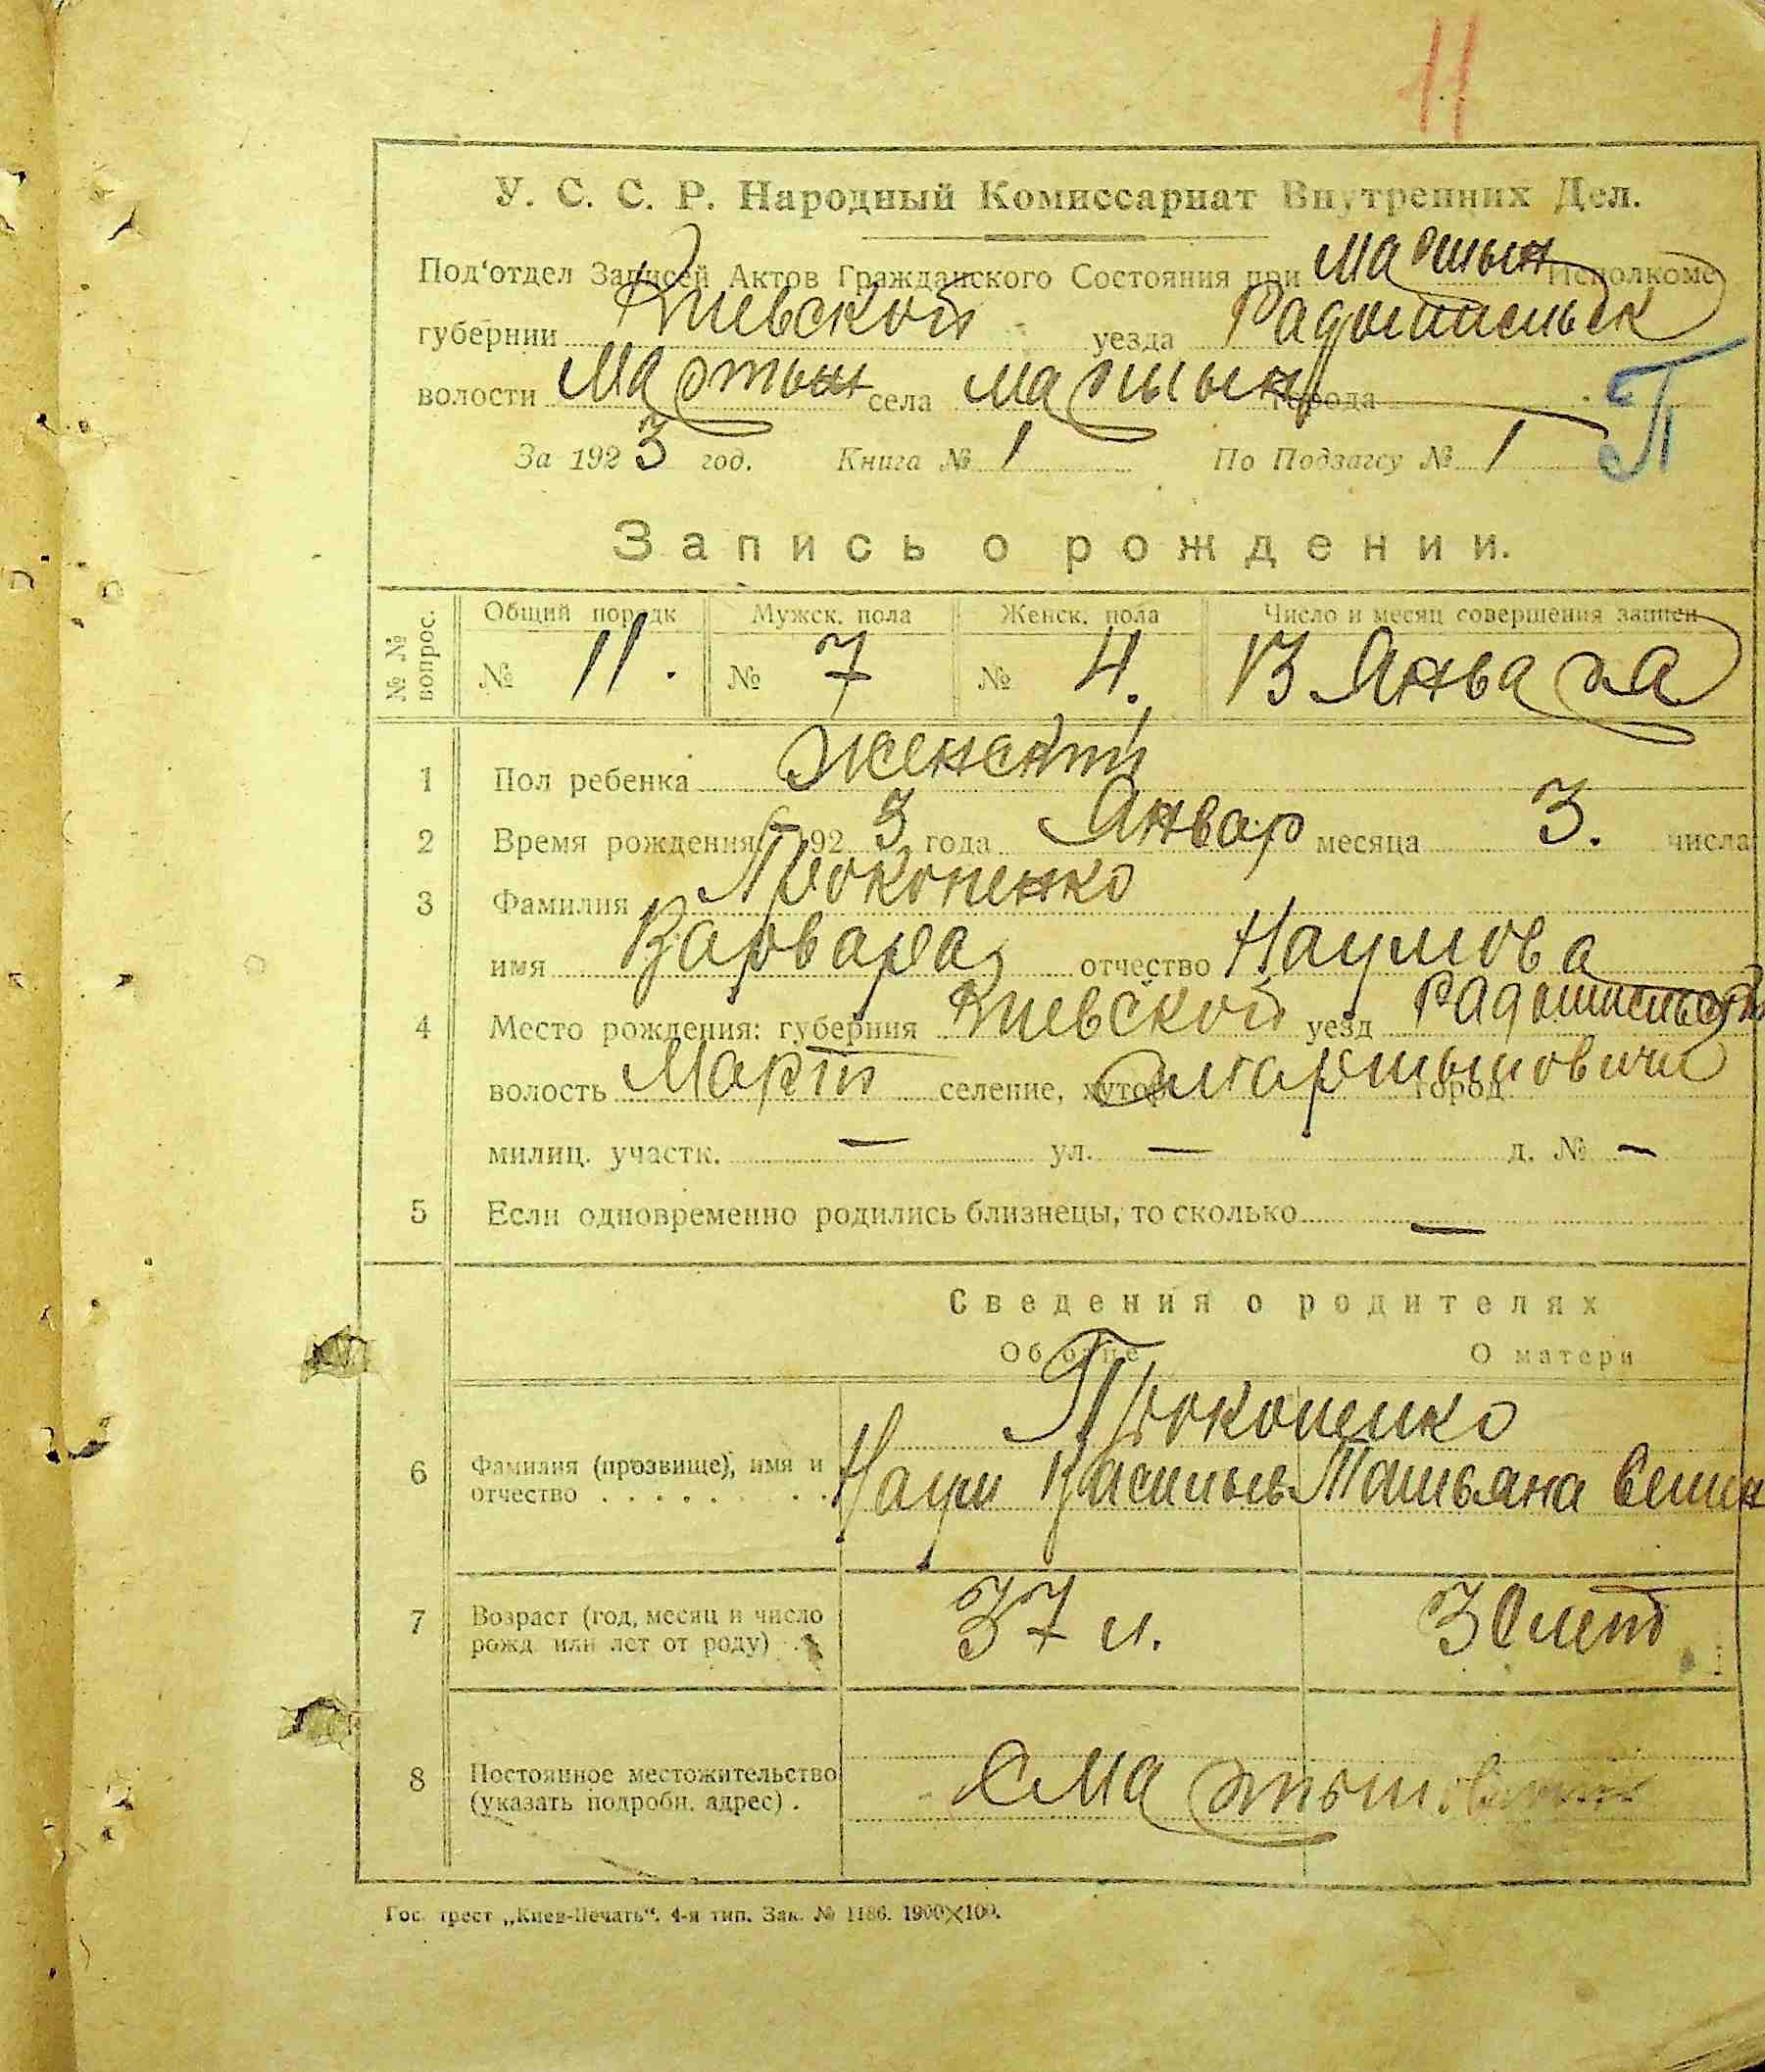 11
У. С. С. Р. Народный Комиссариат Внутренних Дел.
Под'отдел Записей Актов Гражданского Состояния при Мартын Исполкоме
губернии Киевской уезда Радомысльск
волости Мартын села Мартын города
П
За 1923 год. Книга № 1 По Подзагсу № 1
Запись о рождении.
№ № вопрос. Общий порядк Мужск. пола Женск. пола Число и месяц совершения записи
№ 11. № 7 № 4. 13 Января
1 Пол ребенка женский
2 Время рождения 1923 года Январ месяца 3. числа
3 Фамилия Прокопенко
имя Варвара отчество Наумова
4 Место рождения: губерния Киевской уезд
волость Март селение, хутор с Мартыновичи город
милиц. участк. — ул. — д. № —
5 Если одновременно родились близнецы, то сколько —
Сведения о родителях
Об отце О матери
Прокопенко
6 Фамилия (прозвище), имя и Наум Василь Татьяна Семен
отчество . . . . . . . .
7 Возраст (год, месяц и число 37 л. 30 лет
рожд или лет от роду) .
8 Постоянное местожительство с Мартынович
(указать подробн. адрес) .
Гос. трест „Киев-Печать“. 4-я тип. Зак. № 1186. 1900×100.